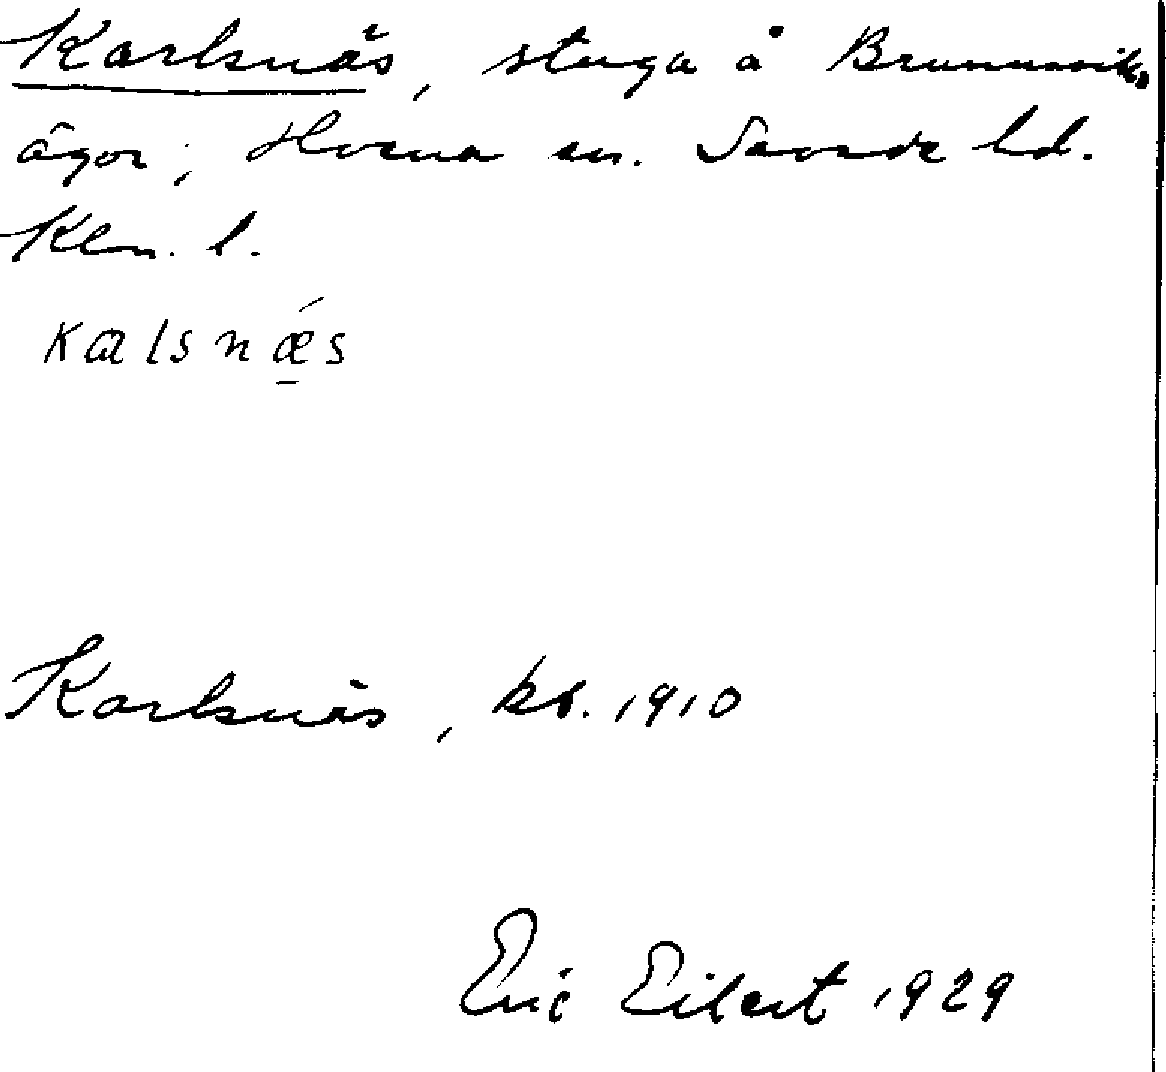 Karlsnäs, stuga å Brunnsviks
ägor; Hvena sn. Sevede hd.
Klm. l.
kalsnǽs
Karlsnäs, kb. 1910
Eric Eilert 1929